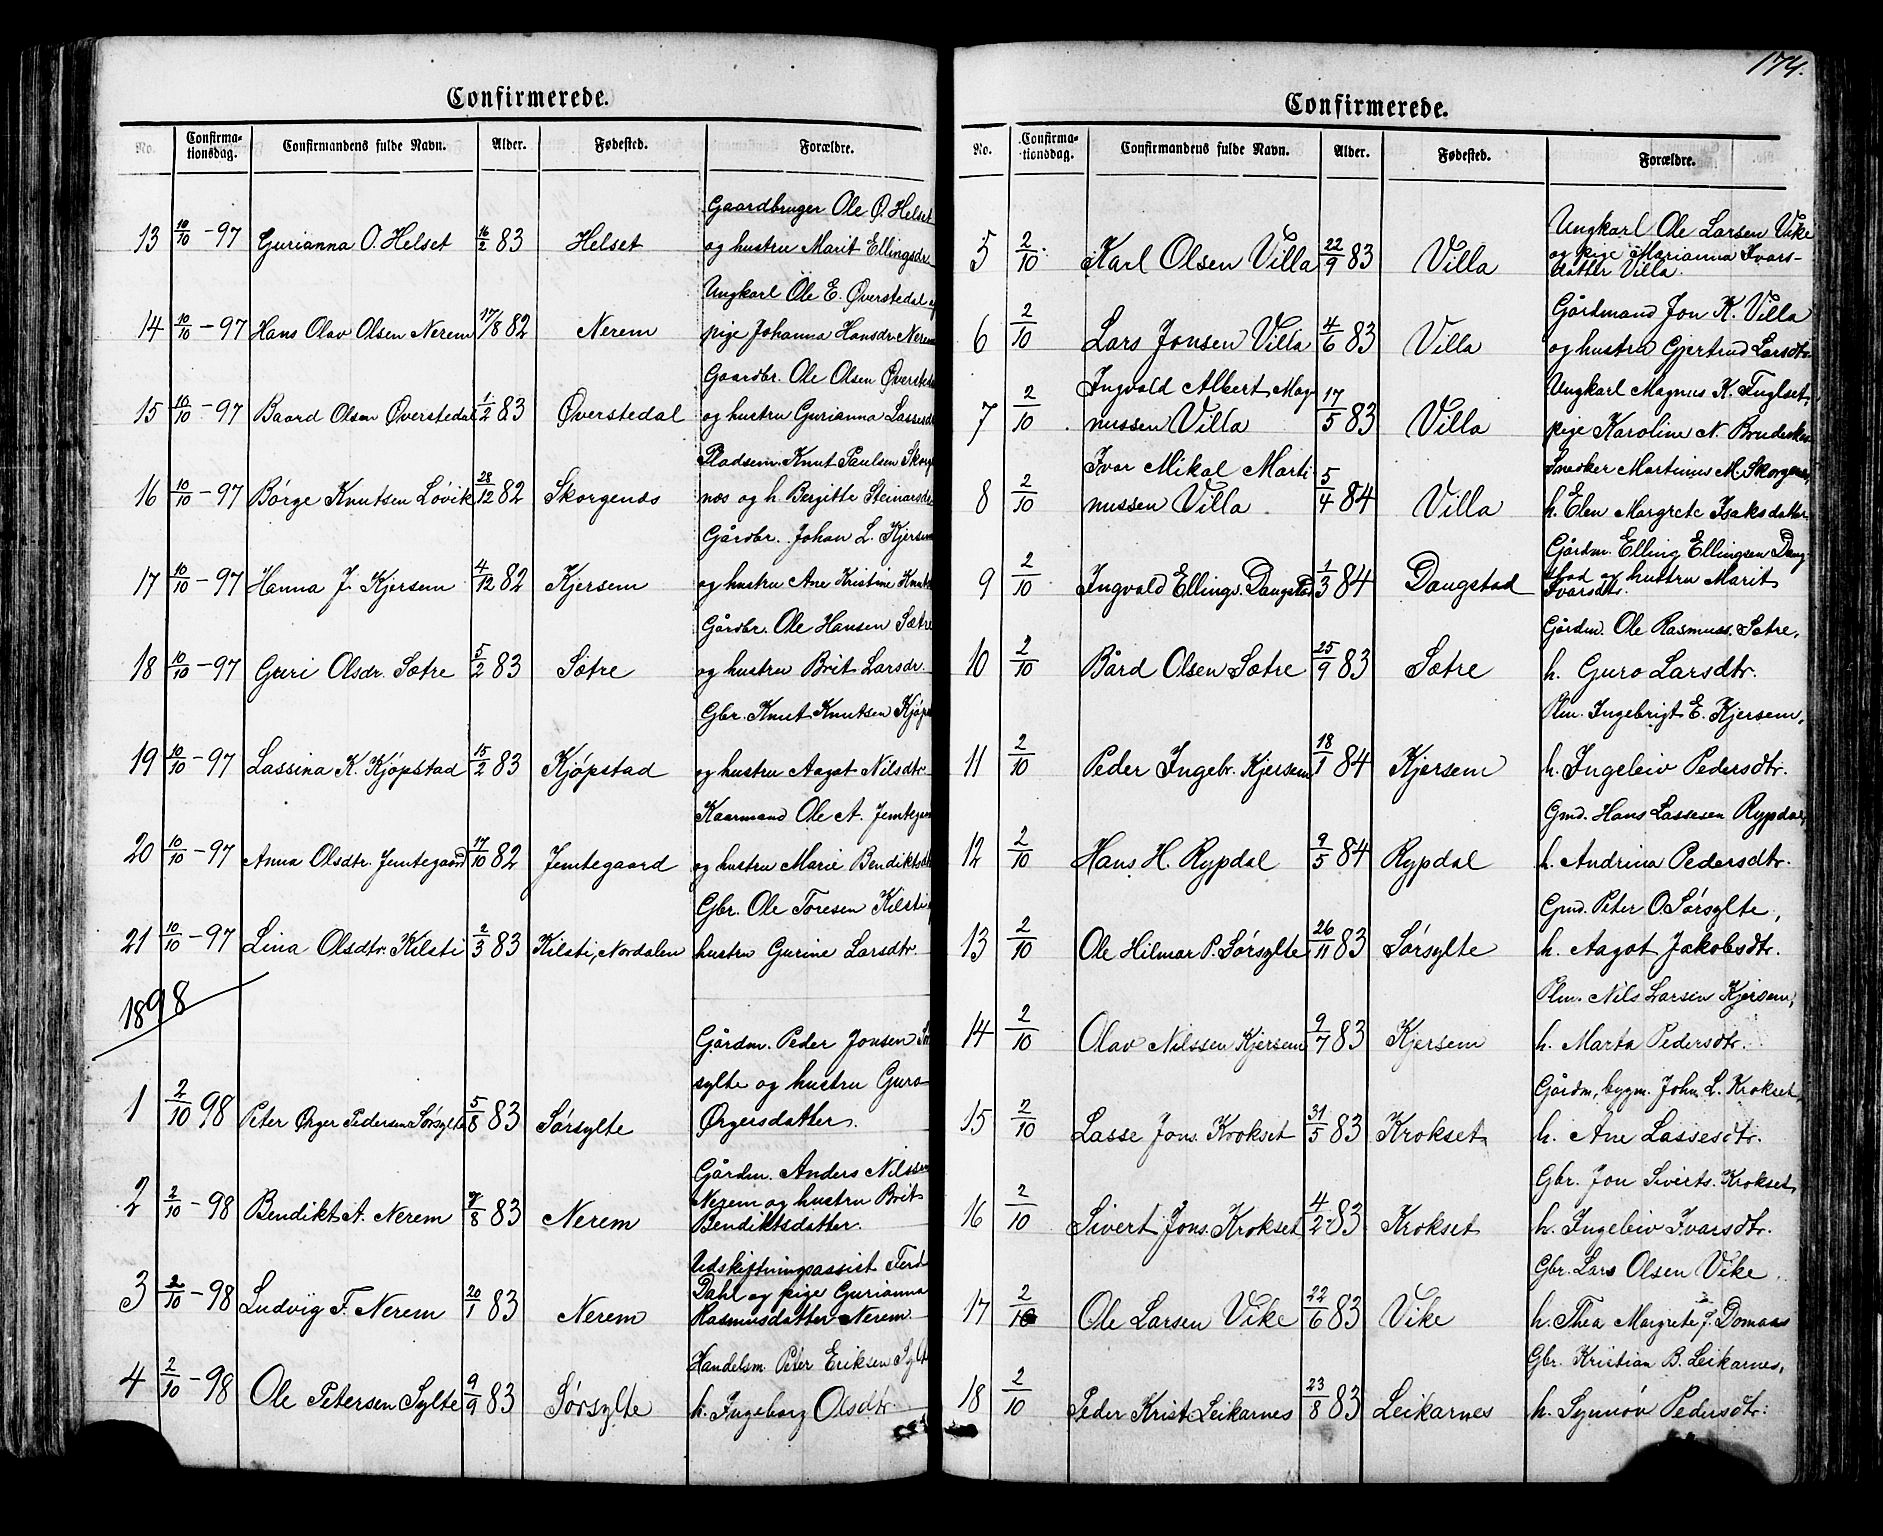 Confirmerede.
No. Confirmationsdag. Confirmandens fulde Navn. Alder. Fødested. Forældre.
Gaardbruger Ole Ø. Helset
13 10/10 -97 Gurianna O. Helset 16/2 83 Helset og hustru Marit Ellingsdr.
Ungkarl Ole E. Øverstedal og
14 10/10 -97 Hans Olav Olsen Nerem 17/8 82 Nerem pige Johanna Hansdr. Nerem
Gaardbr. Ole Olsen Øverstedal
15 10/10 -97 Baard Olsen Øverstedal 1/2 83 Øverstedal og hustru Gurianna Lassesdr
Pladsem. Knut Paulsen Skorge
16 10/10 -97 Børge Knutsen Løvik 28/12 82 Skorgenæs næs og h. Bergitte Steinarsdr
Gårdbr. Johan L. Kjersem
17 10/10 -97 Hanna J. Kjersem 4/12 82 Kjersem og hustru Ane Kristine Knuts
Gårdbr. Ole Hansen Sætre
18 10/10 -97 Guri Olsdr. Sætre 5/2 83 Sætre og hustru Brit Larsdr.
Gbr. Knut Knutsen Kjøps
19 10/10 -97 Lassina K. Kjøpstad 15/2 83 Kjøpstad og hustru Aagot Nilsdtr.
Kaarmand Ole A. Jemtegaard
20 10/10 -97 Anna Olsdtr. Jemtegaard 17/10 82 Jemtegaard og hustru Marie Bendiktsdtr
Gbr. Ole Toresen Kilsti,
21 10/10 -97 Lina Olsdtr. Kilsti 2/3 83 Kilsti, Nordalen hustru Gurine Larsdtr.
1898
Gårdm. Peder Jonsen Sør
sylte og hustru Guro
1 2/10 98 Peter Ørger Pedersen Sørsylte 5/8 83 Sørsylte Ørgersdatter.
Gårdm. Anders Nilssen
2 2/10 -98 Bendikt A. Nerem 7/8 83 Nerem Nerem og hustru Brit
Bendiktsdatter.
Udskiftningsassist Ferd
3 2/10 -98 Ludvig F. Nerem 20/1 83 Nerem Dahl og pige Gurianna
Rasmusdatter Nerem.
Handelsm. Peter Eriksen Sylte
4 2/10 -98 Ole Petersen Sylte 9/9 83 Sørsylte h. Ingeborg Olsdtr.
174.
Confirmerede.
No. Confirmationsdag. Confirmandens fulde Navn. Alder. Fødested. Forældre.
Ungkarl Ole Larsen Vike
5 2/10 Karl Olsen Villa 22/9 83 Villa og pige Marianna Ivars-
datter Villa.
Gårdmand Jon K. Villa
6 2/10 Lars Jonsen Villa 4/6 83 Villa og hustru Gjertrud Larsdtr.
Ingvald Albert Mag- Ungkarl Magnus K. Fuglset,
7 2/10 nussen Villa 17/5 83 Villa pige Karoline N.
Ivar Mikal Marti Snedker Martinus M. Skorgenæs,
8 2/10 nussen Villa 5/4 84 Villa h. Elen Margrete Isaksdatter
Gårdm. Elling Ellingsen Daug-
9 2/10 Ingvald Ellings. Daugstad 1/3 84 Daugstad stad og hustru Marit
Ivarsdtr.
Gårdm. Ole Rasmuss. Sætre,
10 2/10 Bård Olsen Sætre 25/9 83 Sætre h. Guro Larsdtr.
Plm. Ingebrigt E. Kjersem,
11 2/10 Peder Ingebr. Kjersem 18/1 84 Kjersem h. Ingeleiv Pedersdtr.
Gmd. Hans Lassesen Rypdal,
12 2/10 Hans H. Rypdal 9/5 84 Rypdal h. Andrina Pedersdtr.
Gmd. Peter O. Sørsylte,
13 2/10 Ole Hilmar P. Sørsylte 26/11 83 Sørsylte h. Aagot Jakobsdtr.
Plm. Nils Larsen Kjersem,
14 2/10 Olav Nilssen Kjersem 9/7 83 Kjersem h. Marta Pedersdtr.
Gårdm, bygm. John L. Krokset,
15 2/10 Lasse Jons. Krokset 31/5 83 Krokset h. Ane Lassesdtr.
Gbr. Jon Siverts. Krokset
16 2/10 Sivert Jons. Krokset 4/2 83 Krokset h. Ingeleiv Ivarsdtr.
Gbr. Lars Olsen Vike
17 2/10 Ole Larsen Vike 22/6 83 Vike h. Thea Margrete J. Domaas
Gbr. Kristian B. Leikarnes,
18 2/10 Peder Krist. Leikarnes 23/8 83 Leikarnes h. Synnøv Pedersdtr.